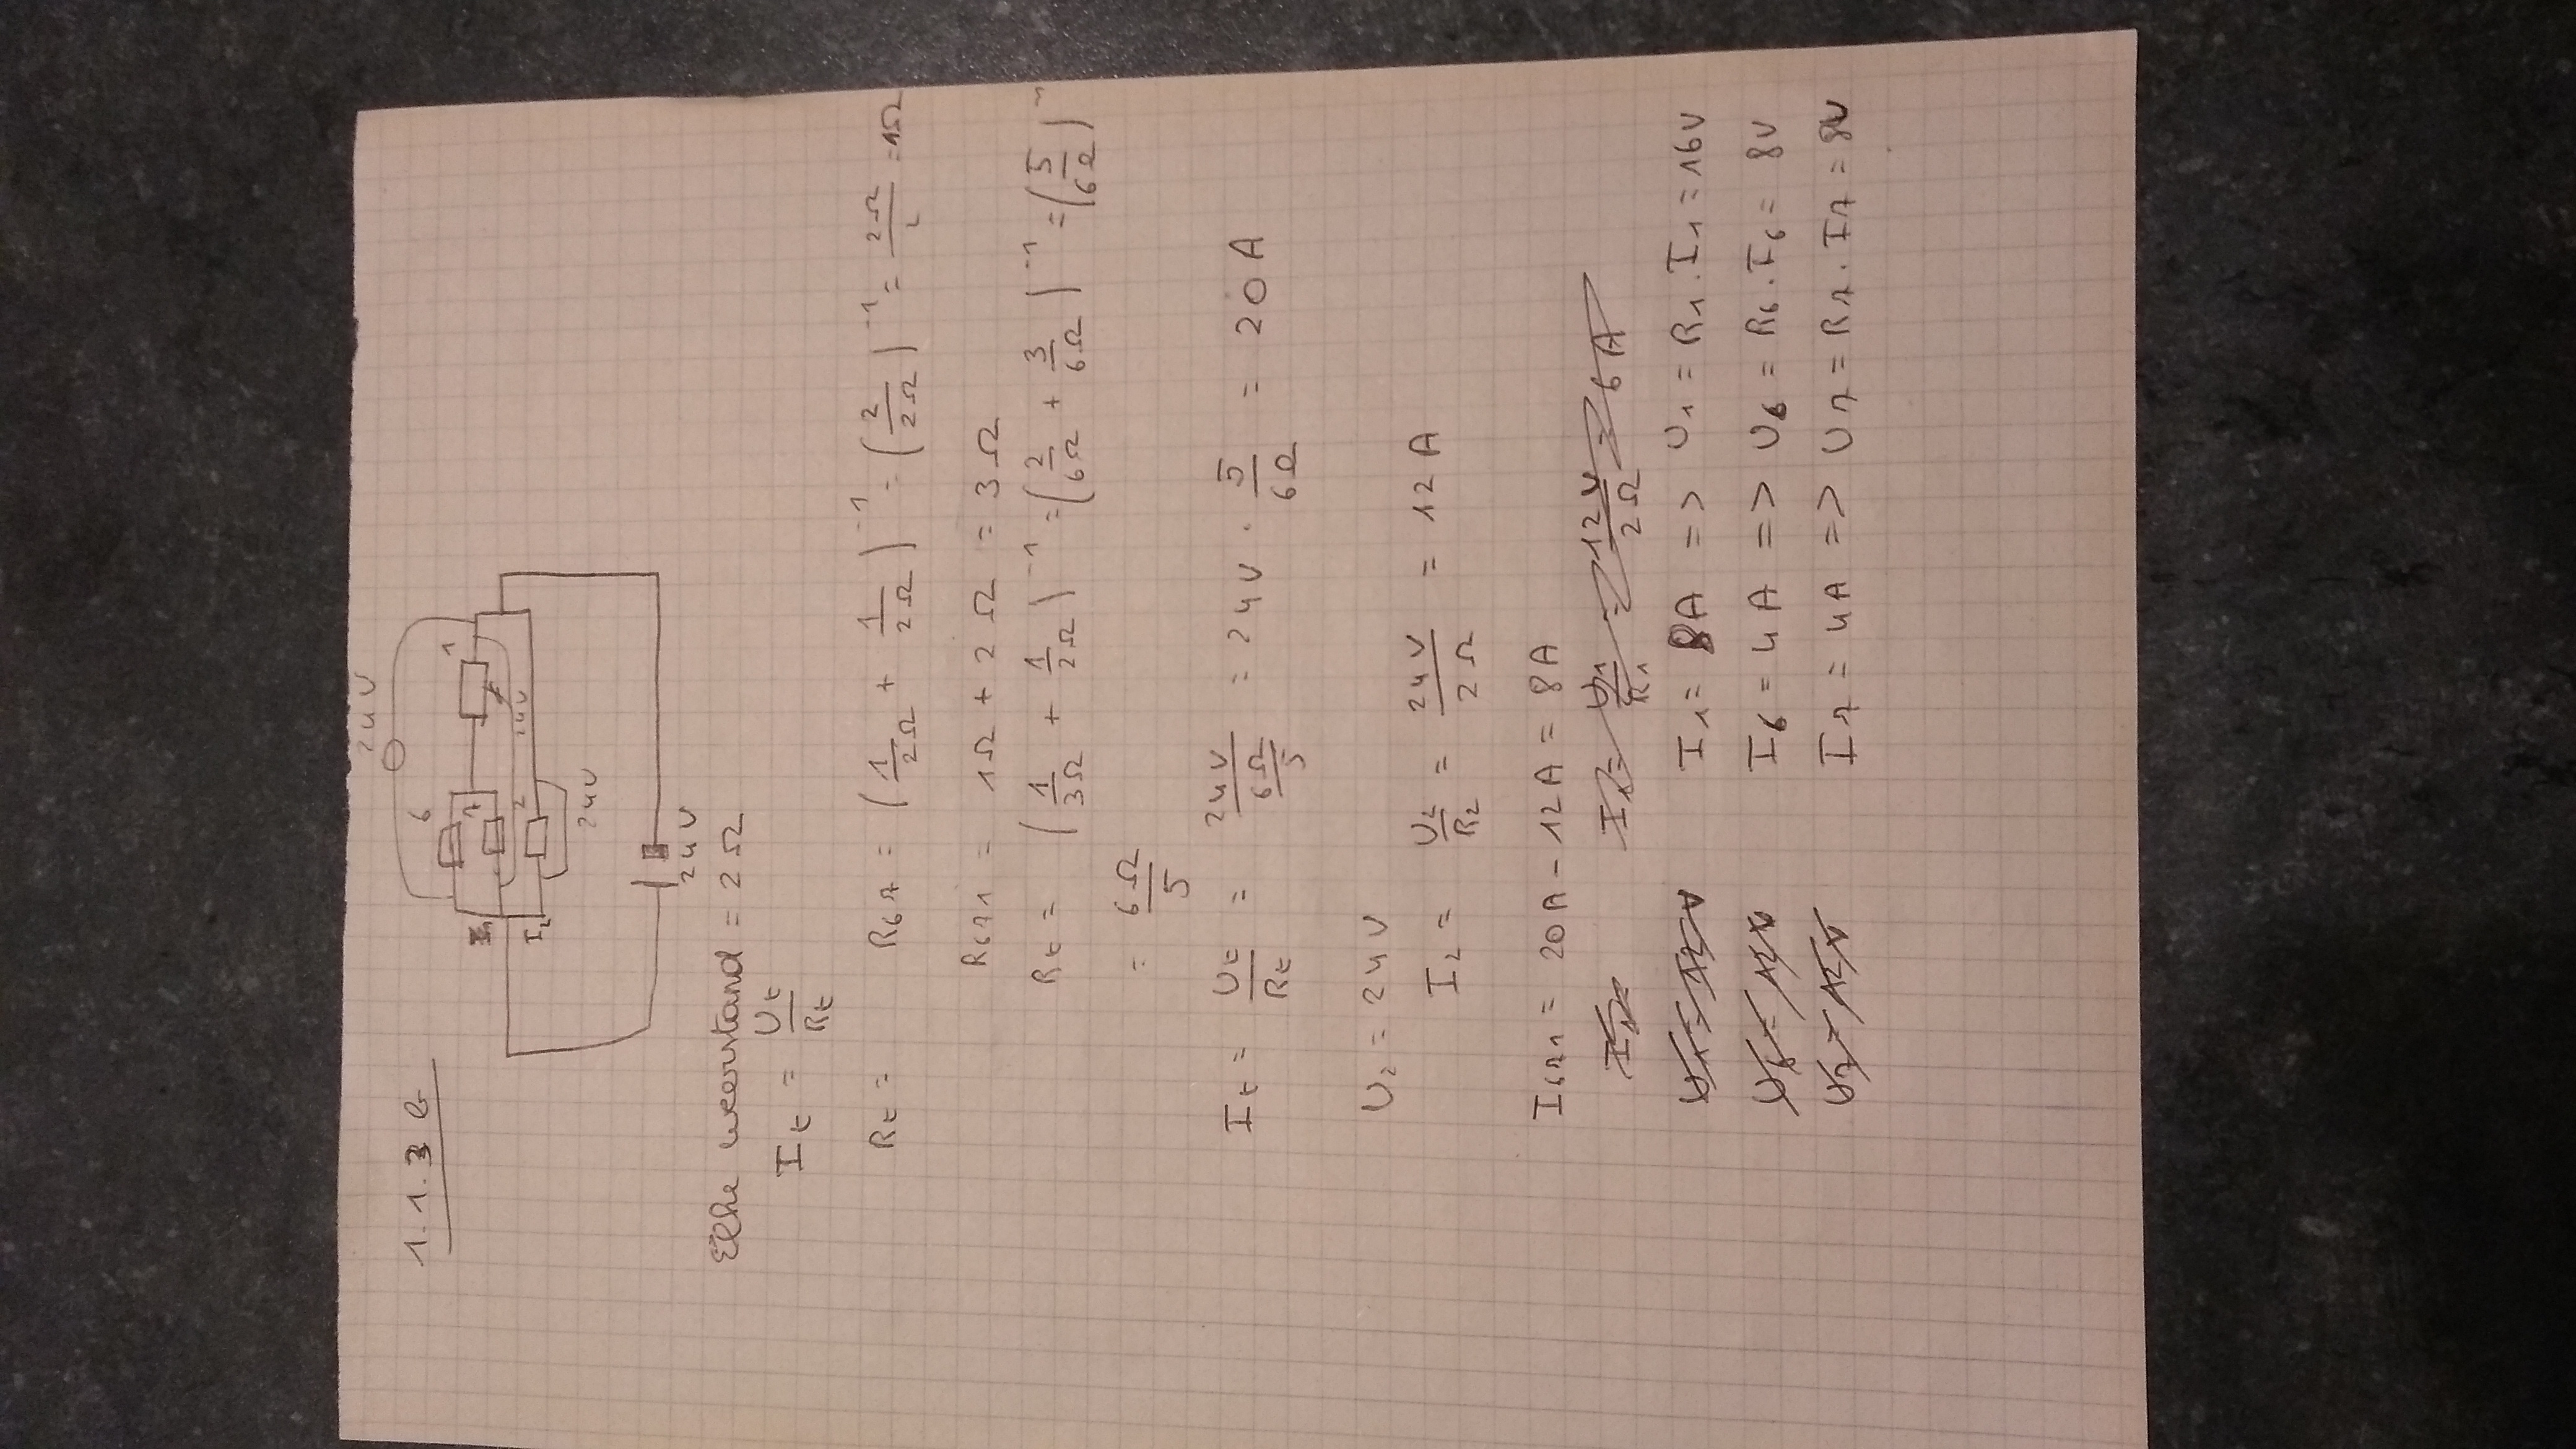 1.1.3 b
24V
6
1
7
I₁
2
24V
I₂
24V
24V
Elke weerstand = 2Ω
It = Ut/Rt
Rt = R67 = (1/2Ω + 1/2Ω)⁻¹ = (2/2Ω)⁻¹ = 2Ω/2 = 1Ω
R671 = 1Ω + 2Ω = 3Ω
Rt = (1/3Ω + 1/2Ω)⁻¹ = (2/6Ω + 3/6Ω)⁻¹ = (5/6Ω)⁻¹
= 6Ω/5
It = Ut/Rt = 24V/(6Ω/5) = 24V · 5/6Ω = 20A
U₂ = 24V
I₂ = U₂/R₂ = 24V/2Ω = 12A
I671 = 20A - 12A = 8A
I₁ = U₁/R₁ = 12V/2Ω = 6A
U₁ = 12V I₁ = 8A => U₁ = R₁.I₁ = 16V
U6 = 12V I6 = 4A => U6 = R6.I6 = 8V
U7 = 12V I7 = 4A => U7 = R7.I7 = 8V